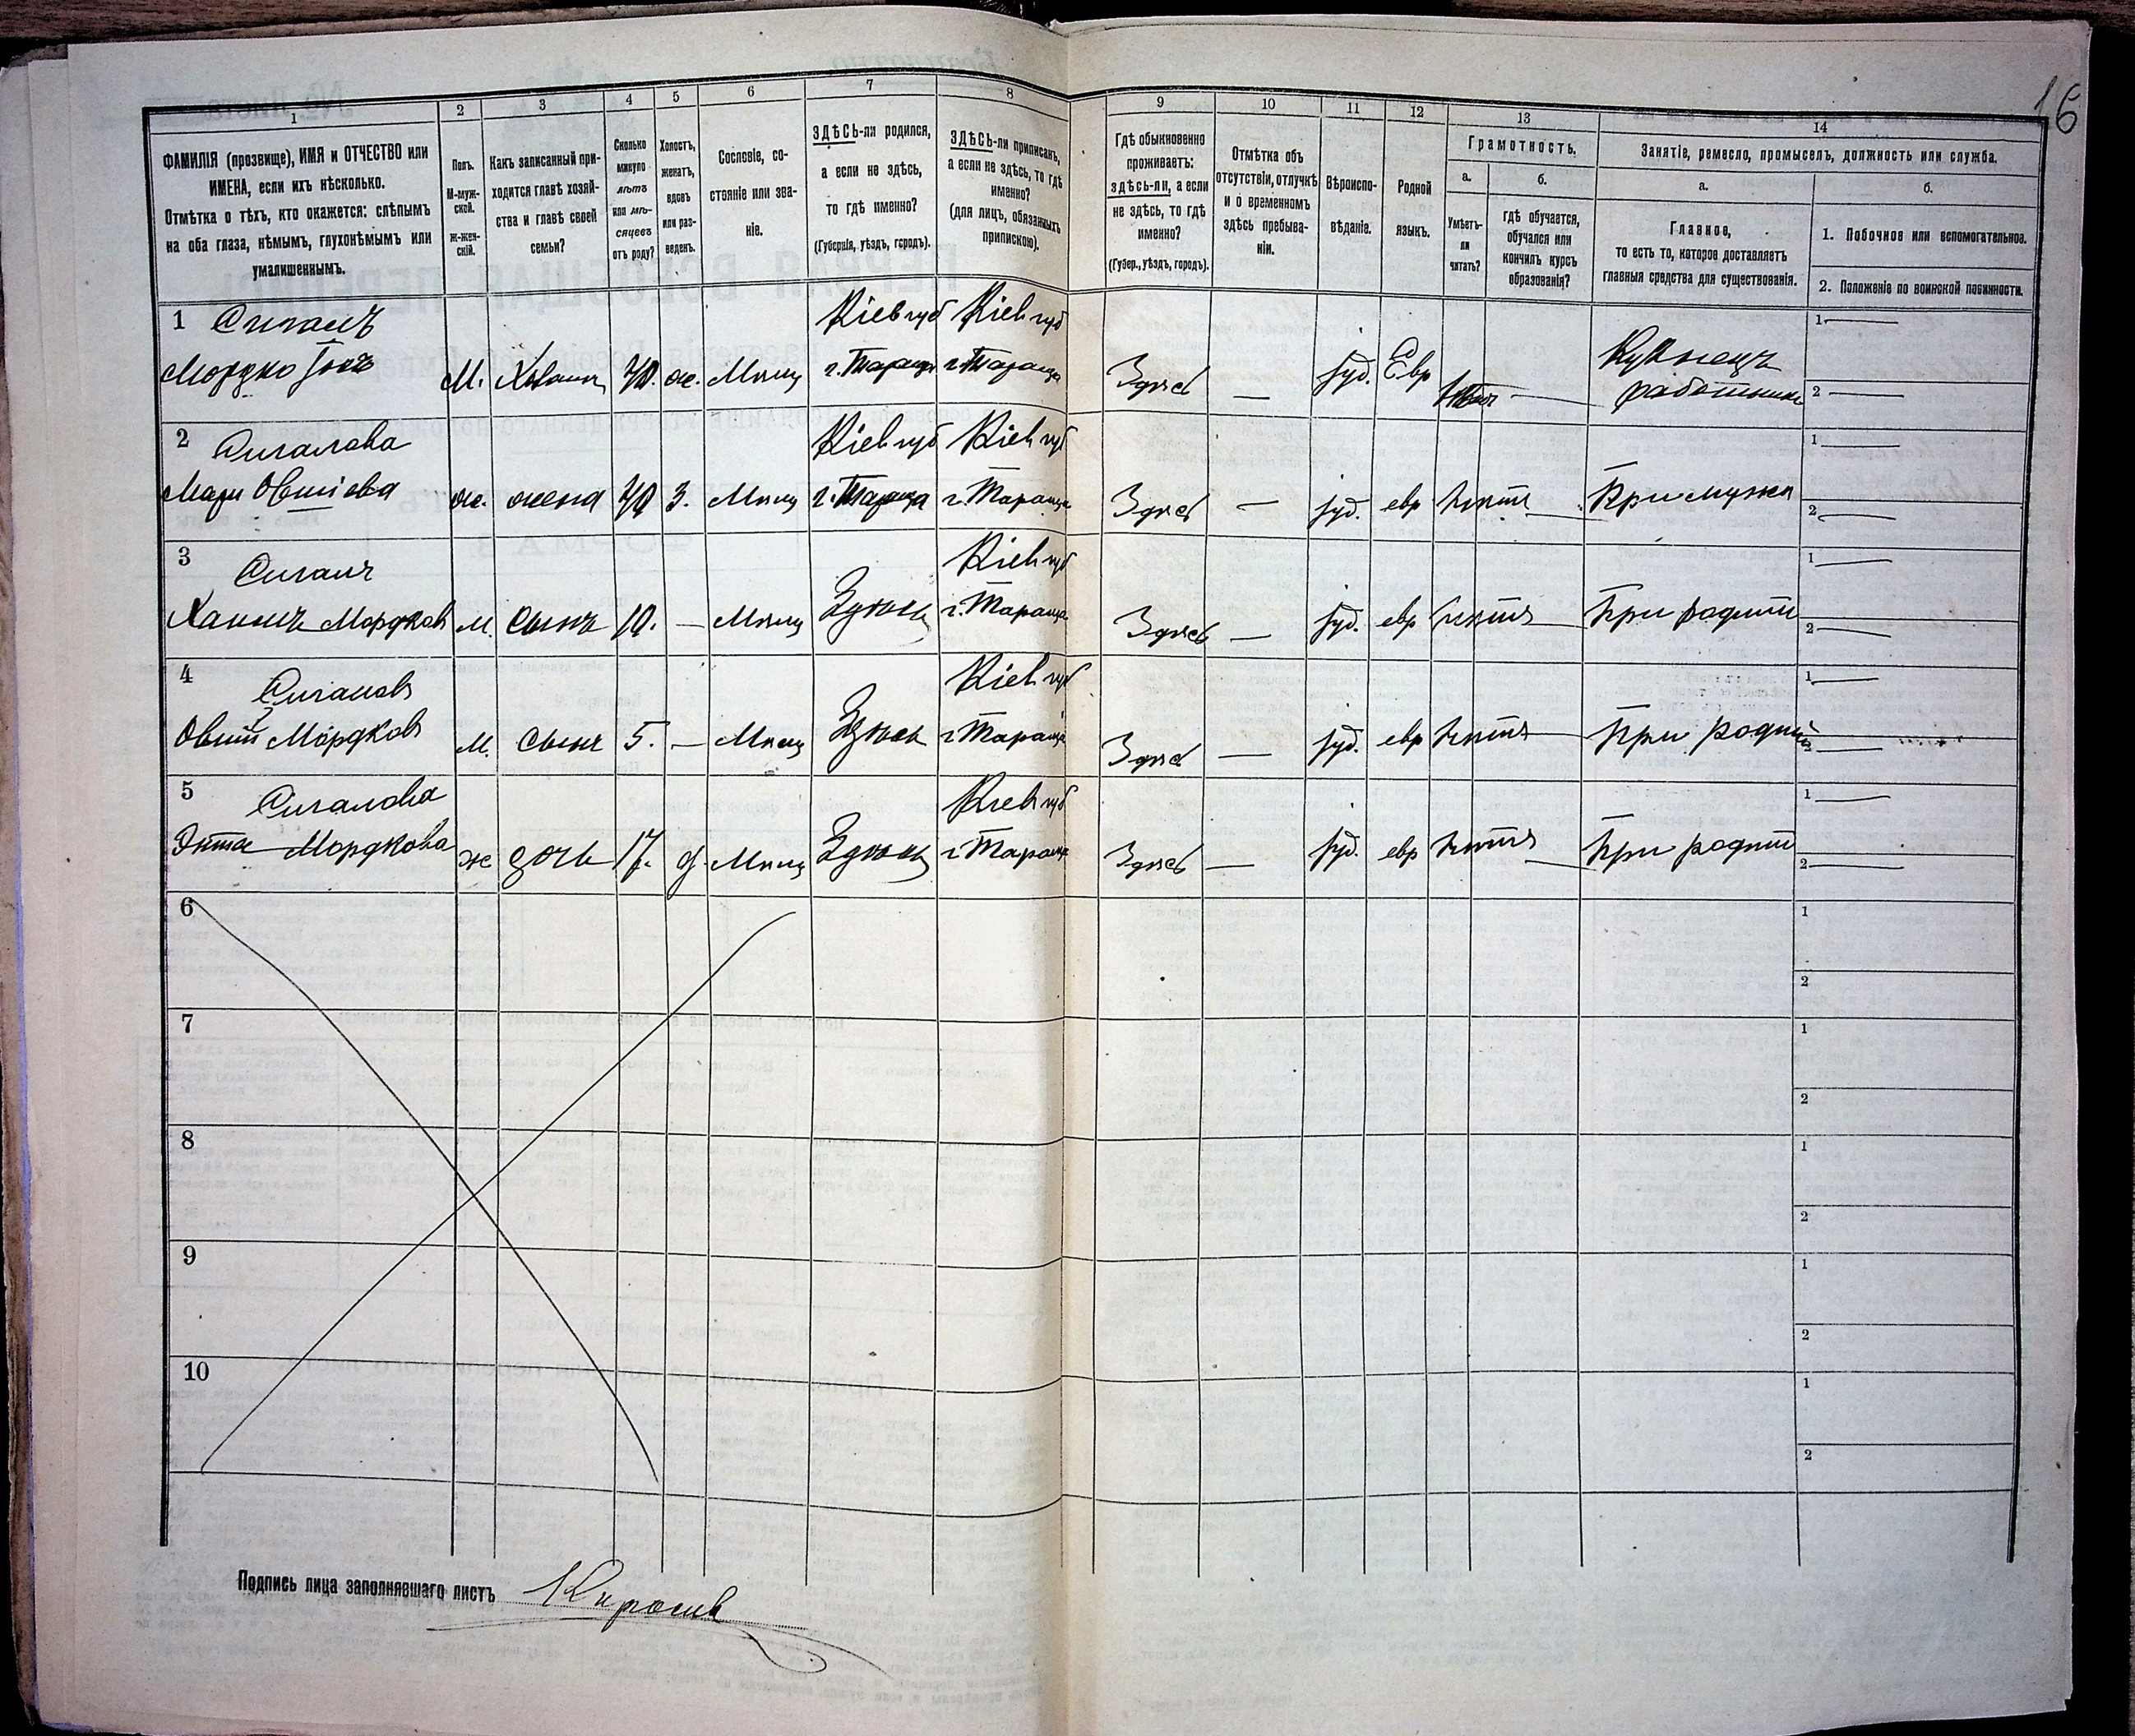 16
1
2
3
4
5
6
7
8
9
10
11
12
13
14
ФАМИЛІЯ (прозвище), ИМЯ и ОТЧЕСТВО или
ИМЕНА, если ихъ нѣсколько.
Отмѣтка о тѣхъ, кто окажется: слѣпымъ
на оба глаза, нѣмымъ, глухонѣмымъ или
умалишеннымъ.
Полъ.
М-муж-
ской.
Ж-жен-
скій.
Какъ записанный при-
ходится главѣ хозяй-
ства и главѣ своей
семьи?
Сколько
минуло
лѣтъ
или мѣ-
сяцевъ
отъ роду?
Холостъ,
женатъ,
вдовъ
или раз-
веденъ.
Сословіе, со-
стояніе или зва-
ніе.
ЗДѢСЬ-ли родился,
а если не здѣсь,
то гдѣ именно?
(Губернія, уѣздъ, городъ).
ЗДѢСЬ-ли приписанъ,
а если не здѣсь, то гдѣ
именно?
(для лицъ, обязанныхъ
припискою).
Гдѣ обыкновенно
проживаетъ:
здѣсь-ли, а если
не здѣсь, то гдѣ
именно?
(Губер., уѣздъ, городъ).
Отмѣтка объ
отсутствіи, отлучкѣ
и о временномъ
здѣсь пребыва-
ніи.
Вѣроиспо-
вѣданіе.
Родной
языкъ.
Грамотность.
а.
Умѣетъ-
ли
читать?
б.
гдѣ обучается,
обучался или
кончилъ курсъ
образованія?
Занятіе, ремесло, промыселъ, должность или служба.
а.
Главное,
то есть то, которое доставляетъ
главныя средства для существованія.
б.
1. Побочное или вспомогательное.
2. Положеніе по воинской повинности.
1 Сигалъ Кіев губ Кіев губ Кузнецъ 1 —
Мордко М. Хозяин 40. ж. Мѣщ г. Тараща г. Тараща Здѣсь — іуд. Евр — работник 2 —
2 Сигалова Кіев губ Кіев губ 1 —
Овшіева ж. жена 40 З. Мѣщ г. Тараща г. Тараща Здѣсь — іуд. евр нѣтъ — При мужѣ 2 —
3 Сигалъ Кіев губ 1 —
Мордков М. Сынъ 10. — Мѣщ Здѣсь г. Тараща Здѣсь — іуд. евр нѣтъ — При родит 2 —
4 Сигалов Кіев губ 1 —
Овший Мордков М. Сынъ 5. — Мѣщ Здѣсь г. Тараща Здѣсь — іуд. евр нѣтъ — При родит 2 —
5 Сигалова Кіев губ 1 —
Мордкова ж дочь 17. д. Мѣщ Здѣсь г. Тараща Здѣсь — іуд. евр нѣтъ — При родит 2 —
6 1
2
7 1
2
8 1
2
9 1
2
10 1
2
Подпись лица заполнявшаго листъ